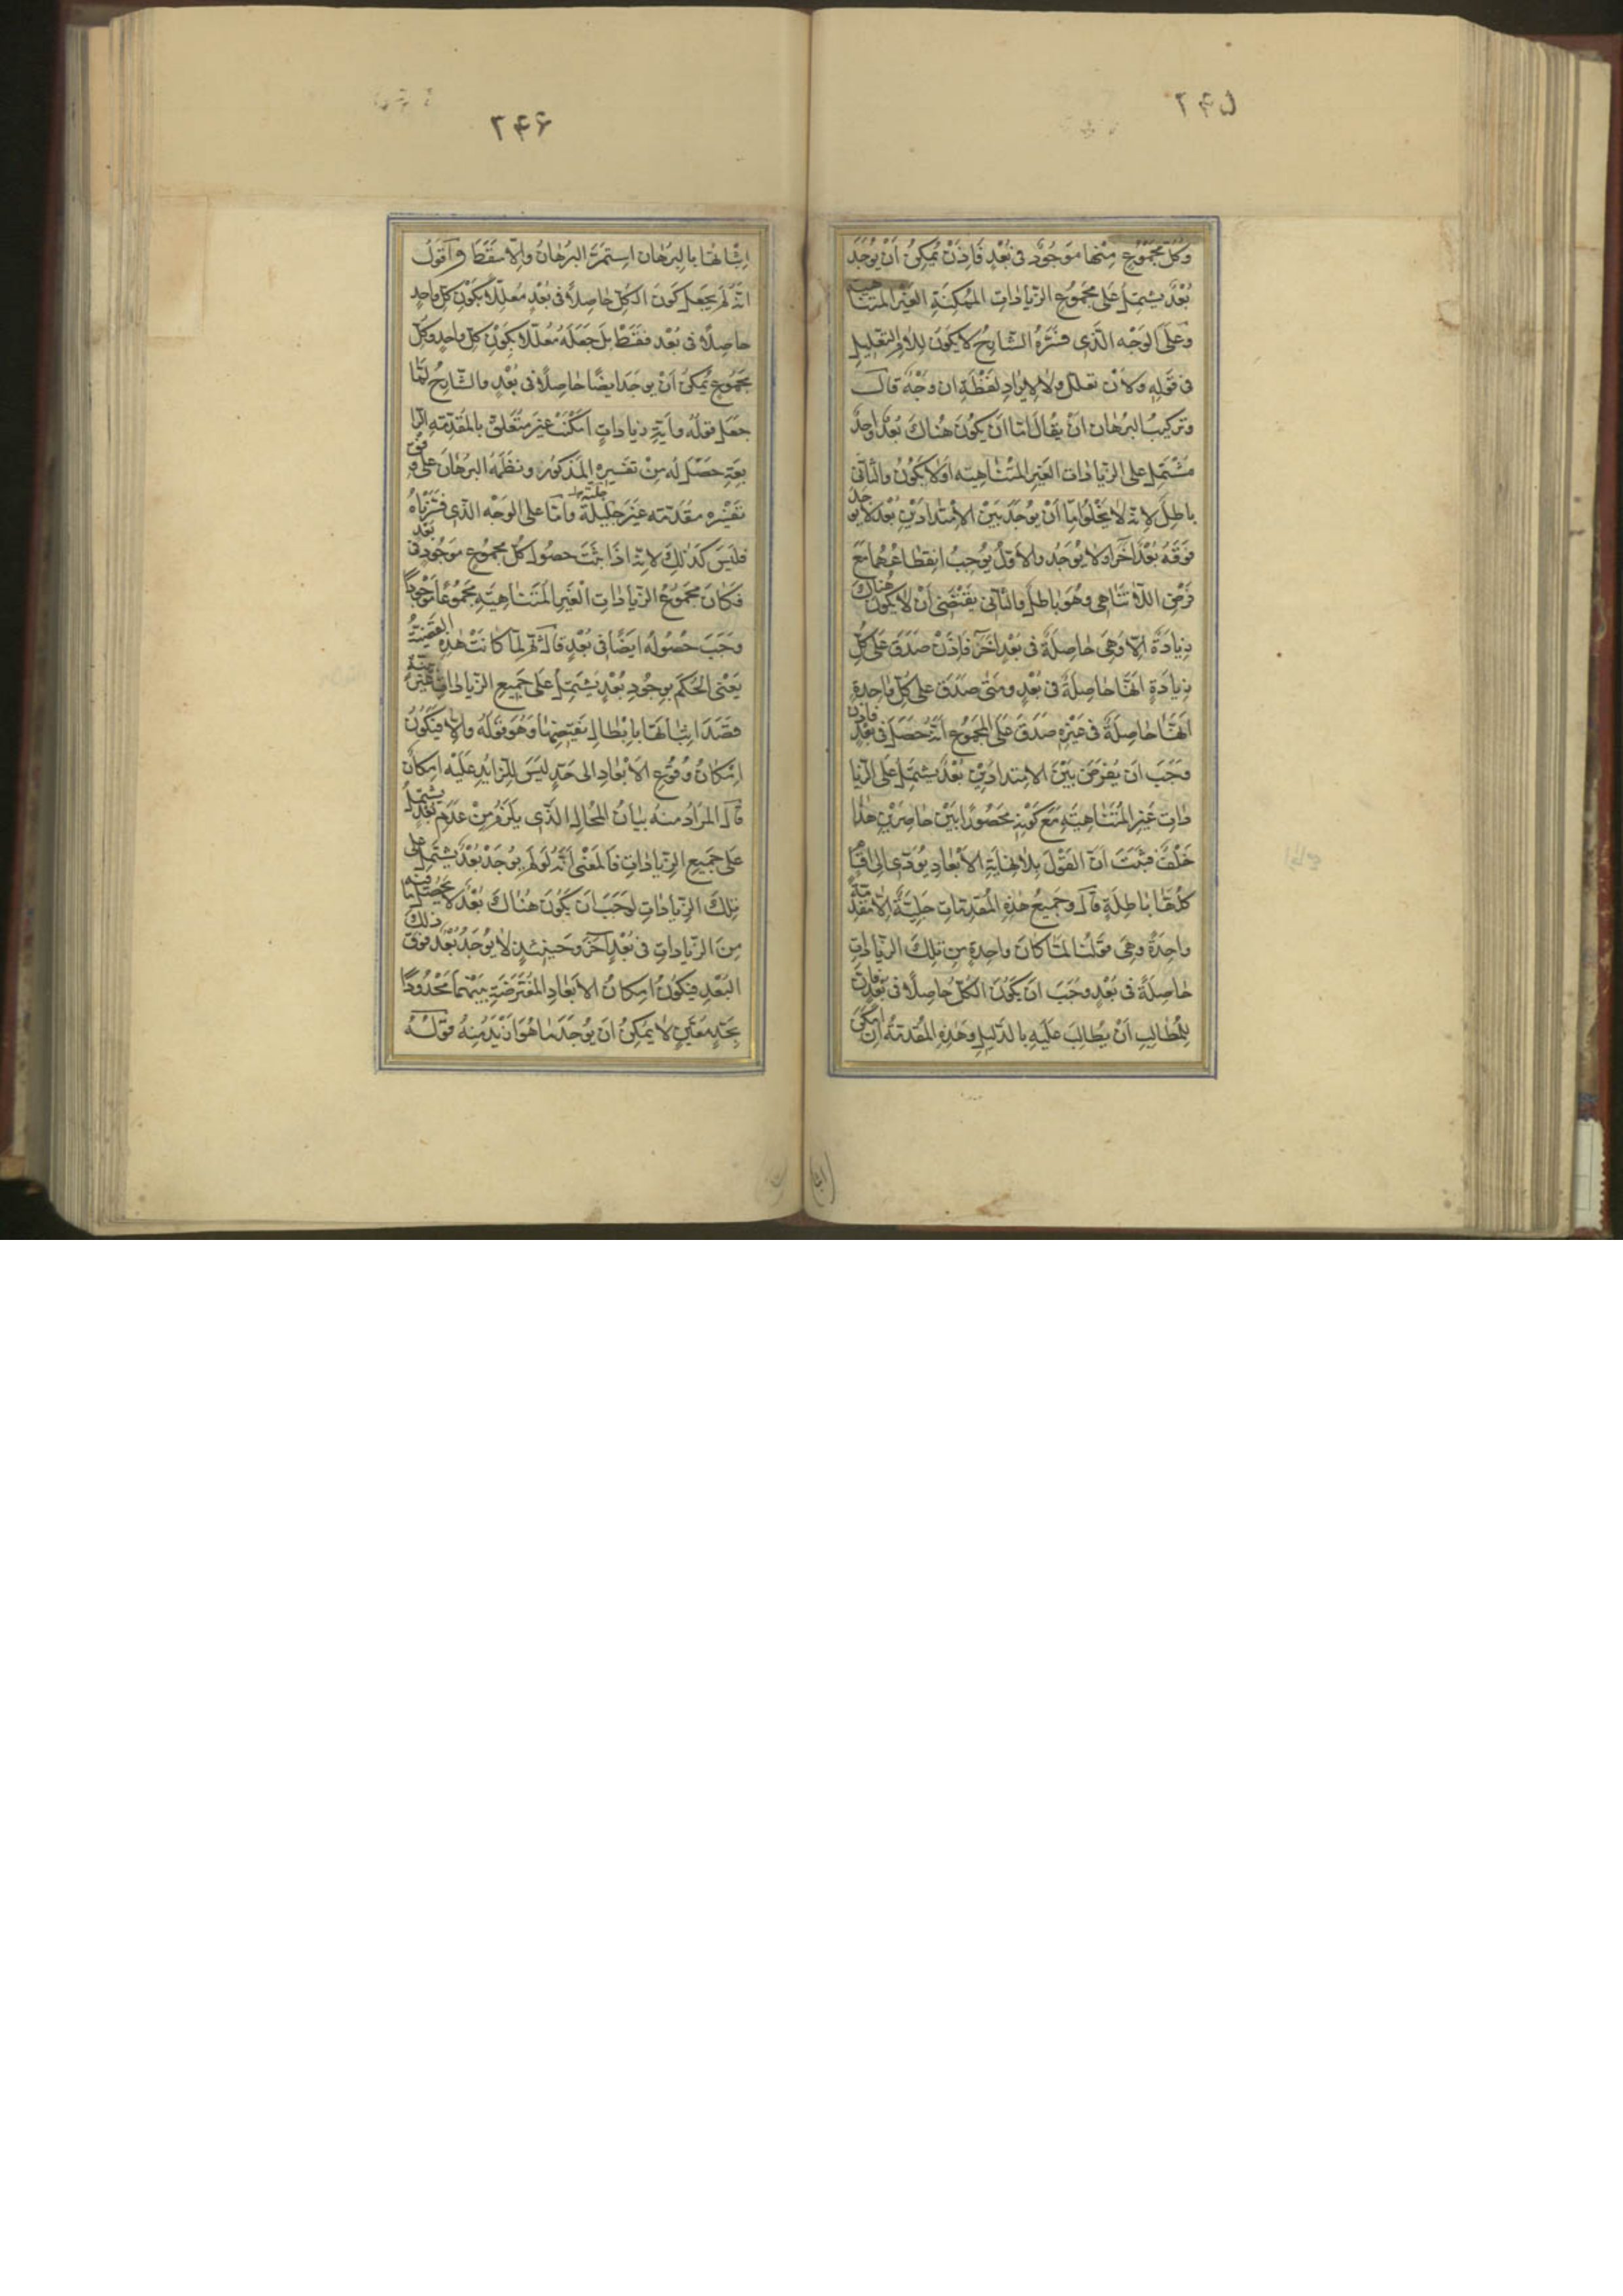 ۲۴۵
وكل مجموع منها موجود في بعد فاذن يمكن ان يوجد
بعد يشتمل على مجموع الزيادات الممكنة الغير المتناهية
وعلى الوجه الذي فسره الشارح لا يكون للام التعليل
في قوله ولان تعلل ولا لايراد لفظة ان وجه قال
وتركيب البرهان ان يقال اما ان يكون هناك بعد واحد
مشتمل على الزيادات الغير المتناهية اولا يكون والثاني
باطل لانه لا يخلوا اما ان يوجد بين الامتدادين بعد لا يوجد
فوقه بعد آخر اولا يوجد والاول يوجب انقطاعهما مع
فرض اللاتناهي وهو باطل والثاني يقتضي ان لا يكون هناك
زيادة الا وهي حاصلة في بعد آخر فاذن صدق على كل
زيادة انها حاصلة في بعد ومتى صدق على كل واحدة
انها حاصلة في غيره صدق على المجموع انه حصل في بعد فاذن
وجب ان يفرض بين الامتدادين بعد يشتمل على الزيا
دات غير المتناهية مع كونه محصورا بين حاصرين هذا
خلف فثبت ان القول بلانهاية الابعاد يؤدي الى اقسام
كلها باطلة قال وجميع هذه المقدمات جلية الا مقدمة
واحدة وهي قولنا لما كان واحدة من تلك الزيادات
حاصلة في بعد وجب ان يكون الكل حاصلا في بعد فان
للمطالب ان يطالب عليه بالدليل وهذه المقدمة ان امكن
۲۴۶
اثباتها بالبرهان استمر البرهان والا سقط واقول
انه لم يجعل كون الكل حاصلا في بعد معللا بكون كل واحد
حاصلا في بعد فقط بل جعله معللا بكون كل واحد وكل
مجموع يمكن ان يوجد ايضا حاصلا في بعد والشارح لما
جعل قوله واية زيادات امكنت غير متعلق بالمقدمة الرا
بعة حصل له من تفسيره المذكور ونظمه البرهان على وفق
تفسيره مقدمته غير جليلة جلية واما على الوجه الذي فسرناه
فليس كذلك لانه اذا ثبت حصول كل مجموع موجود في بعد
فكان مجموع الزيادات الغير المتناهية مجموعا موجودا
وجب حصوله ايضا في بعد قال ثم لما كانت هذه القضية
يعنى الحكم بوجود بعد يشتمل على جميع الزيادات
قصد اثباتها بابطال نقيضها وهو قوله والا فيكون
امكان وقوع الابعاد الى حد ليس للزايد عليه امكان
قال المراد منه بيان المحال الذي يلزم من عدم بعد يشتمل
على جميع الزيادات فالمعنى انه لو لم يوجد بعد يشتمل على
تلك الزيادات لوجب ان يكون هناك بعد لا يحصل ما فيه
من الزيادات في بعد آخر وحينئذ لا يوجد بعد فوق ذلك
البعد فيكون امكان الابعاد المفترضة بينهما محدودا
بحد معين لا يمكن ان يوجد ما هو ازيد منه قوله